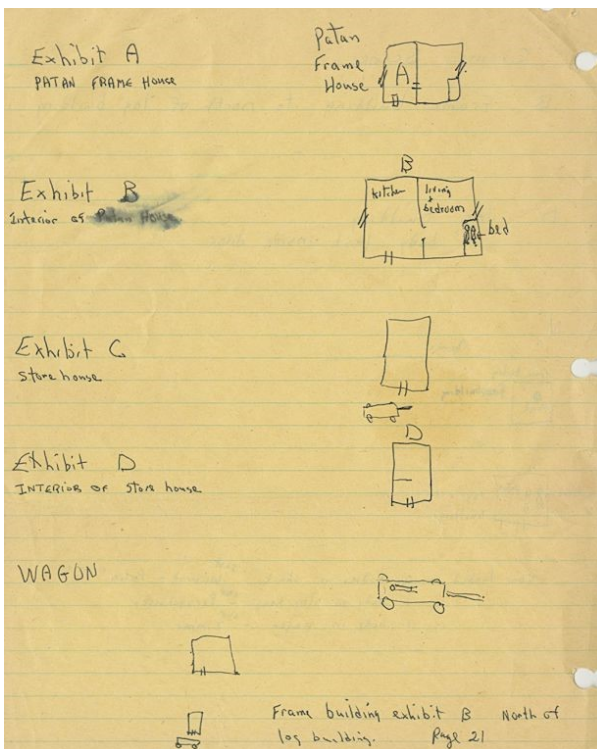 Exhibit A
PATAN FRAME HOUSE
Patan
Frame
House
A
Exhibit B
Interior of Patan House
B
kitchen
living
+
bedroom
bed
Exhibit C
Store house
Exhibit D
INTERIOR OF Store house
D
WAGON
Frame building exhibit B North of
log building. Page 21